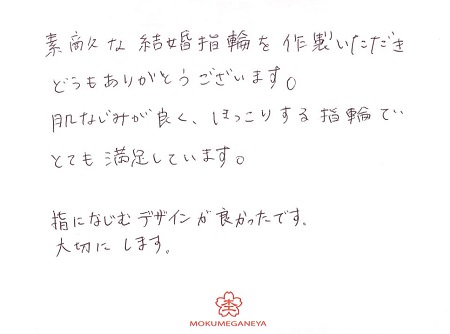 素敵な結婚指輪を作製いただき
どうもありがとうございます。
肌なじみが良く、ほっこりする指輪で
とても満足しています。
指になじむデザインが良かったです。
大切にします。
MOKUMEGANEYA